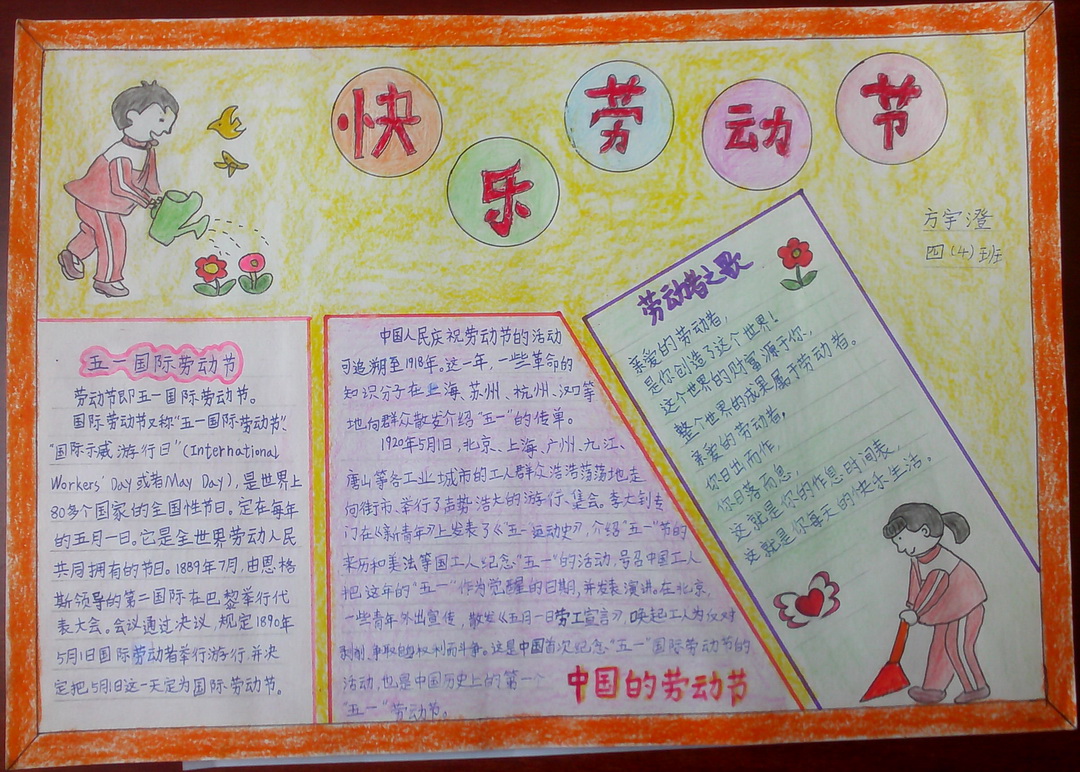 快乐劳动节
方宇澄
四(4)班
五一国际劳动节
劳动节即五一国际劳动节。
国际劳动节又称"五一国际劳动节"、
"国际示威游行日"(International
Workers' Day或者May Day),是世界上
80多个国家的全国性节日。定在每年
的五月一日。它是全世界劳动人民
共同拥有的节日。1889年7月,由恩格
斯领导的第二国际在巴黎举行代
表大会。会议通过决议,规定1890年
5月1日国际劳动者举行游行,并决
定把5月1日这一天定为国际劳动节。
中国人民庆祝劳动节的活动
可追溯至1918年。这一年,一些革命的
知识分子在上海、苏州、杭州、汉口等
地向群众散发介绍"五一"的传单。
1920年5月1日,北京、上海、广州、九江、
唐山等各工业城市的工人群众浩浩荡荡地走
向街市、举行了声势浩大的游行、集会。李大钊专
门在《新青年》上发表了《五一运动史》,介绍"五一"节的
来历和美法等国工人纪念"五一"的活动,号召中国工人
把这年的"五一"作为觉醒的日期,并发表演讲。在北京,
一些青年外出宣传、散发《五月一日劳工宣言》,唤起工人为反对
剥削、争取自权利而斗争。这是中国首次纪念"五一"国际劳动节的
活动,也是中国历史上的第一个
"五一"劳动节。
中国的劳动节
劳动者之歌
亲爱的劳动者,
是你创造了这个世界!
这个世界的财富源于你,
整个世界的成果属于劳动者。
亲爱的劳动者,
你日出而作,
你日落而息,
这就是你的作息时间表,
这就是你每天的快乐生活。